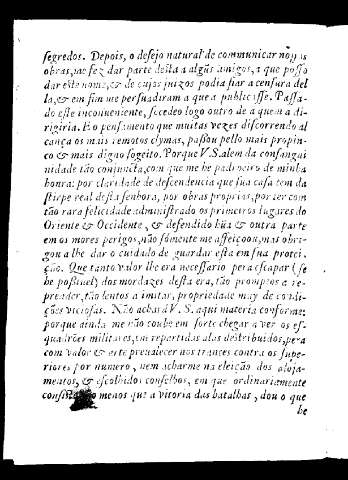 segredos. Depois, o desejo natural de communicar nossas
obras, me fez dar parte desta a algũs amigos, a que posso
dar este nome, & de cujos juizos podia fiar a censura del
la, & em fim me persuadiram a que a publicasse. Passa-
do este inconveniente, socedeo logo outro de a quem a di-
rigiria. E o pensamento que muitas vezes discorrendo al
cança os mais remotos clymas, passou pello mais propin-
co & mais digno sogeito. Porque V.S. alem da consangui
nidade tão conjuncta, com que me he padroeiro de minha
honra: por claridade de descendencia que sua casa tem da
stirpe real desta senhora, por obras proprias, por ter com
tão rara felicidade administrado os primeros lugares do
Oriente & Occidente, & defendido hũa & outra parte
em os mores perigos, não sómente me affeiçoou, mas obri-
gou a lhe dar o cuidado de guardar esta em sua protei-
ção. Que tanto valor lhe era necessario pera escapar (se
he possivel) dos mordazes desta era, tão promptos a re-
preender, tão lentos a imitar, propriedade may de condi-
ções viciosas. Não achará V. S. aqui materia conforme:
porque ainda me não coube em sorte chegar a ver os es-
quadrões militares, em repartidas alas destribuidos, pera
com valor & arte prevalecer nos trances contra os supe-
riores por numero, nem acharme na eleição dos aloja-
mentos, & escolhidos conselhos, em que ordinariamente
consiste não menos que a vitoria das batalhas, dou o que
he